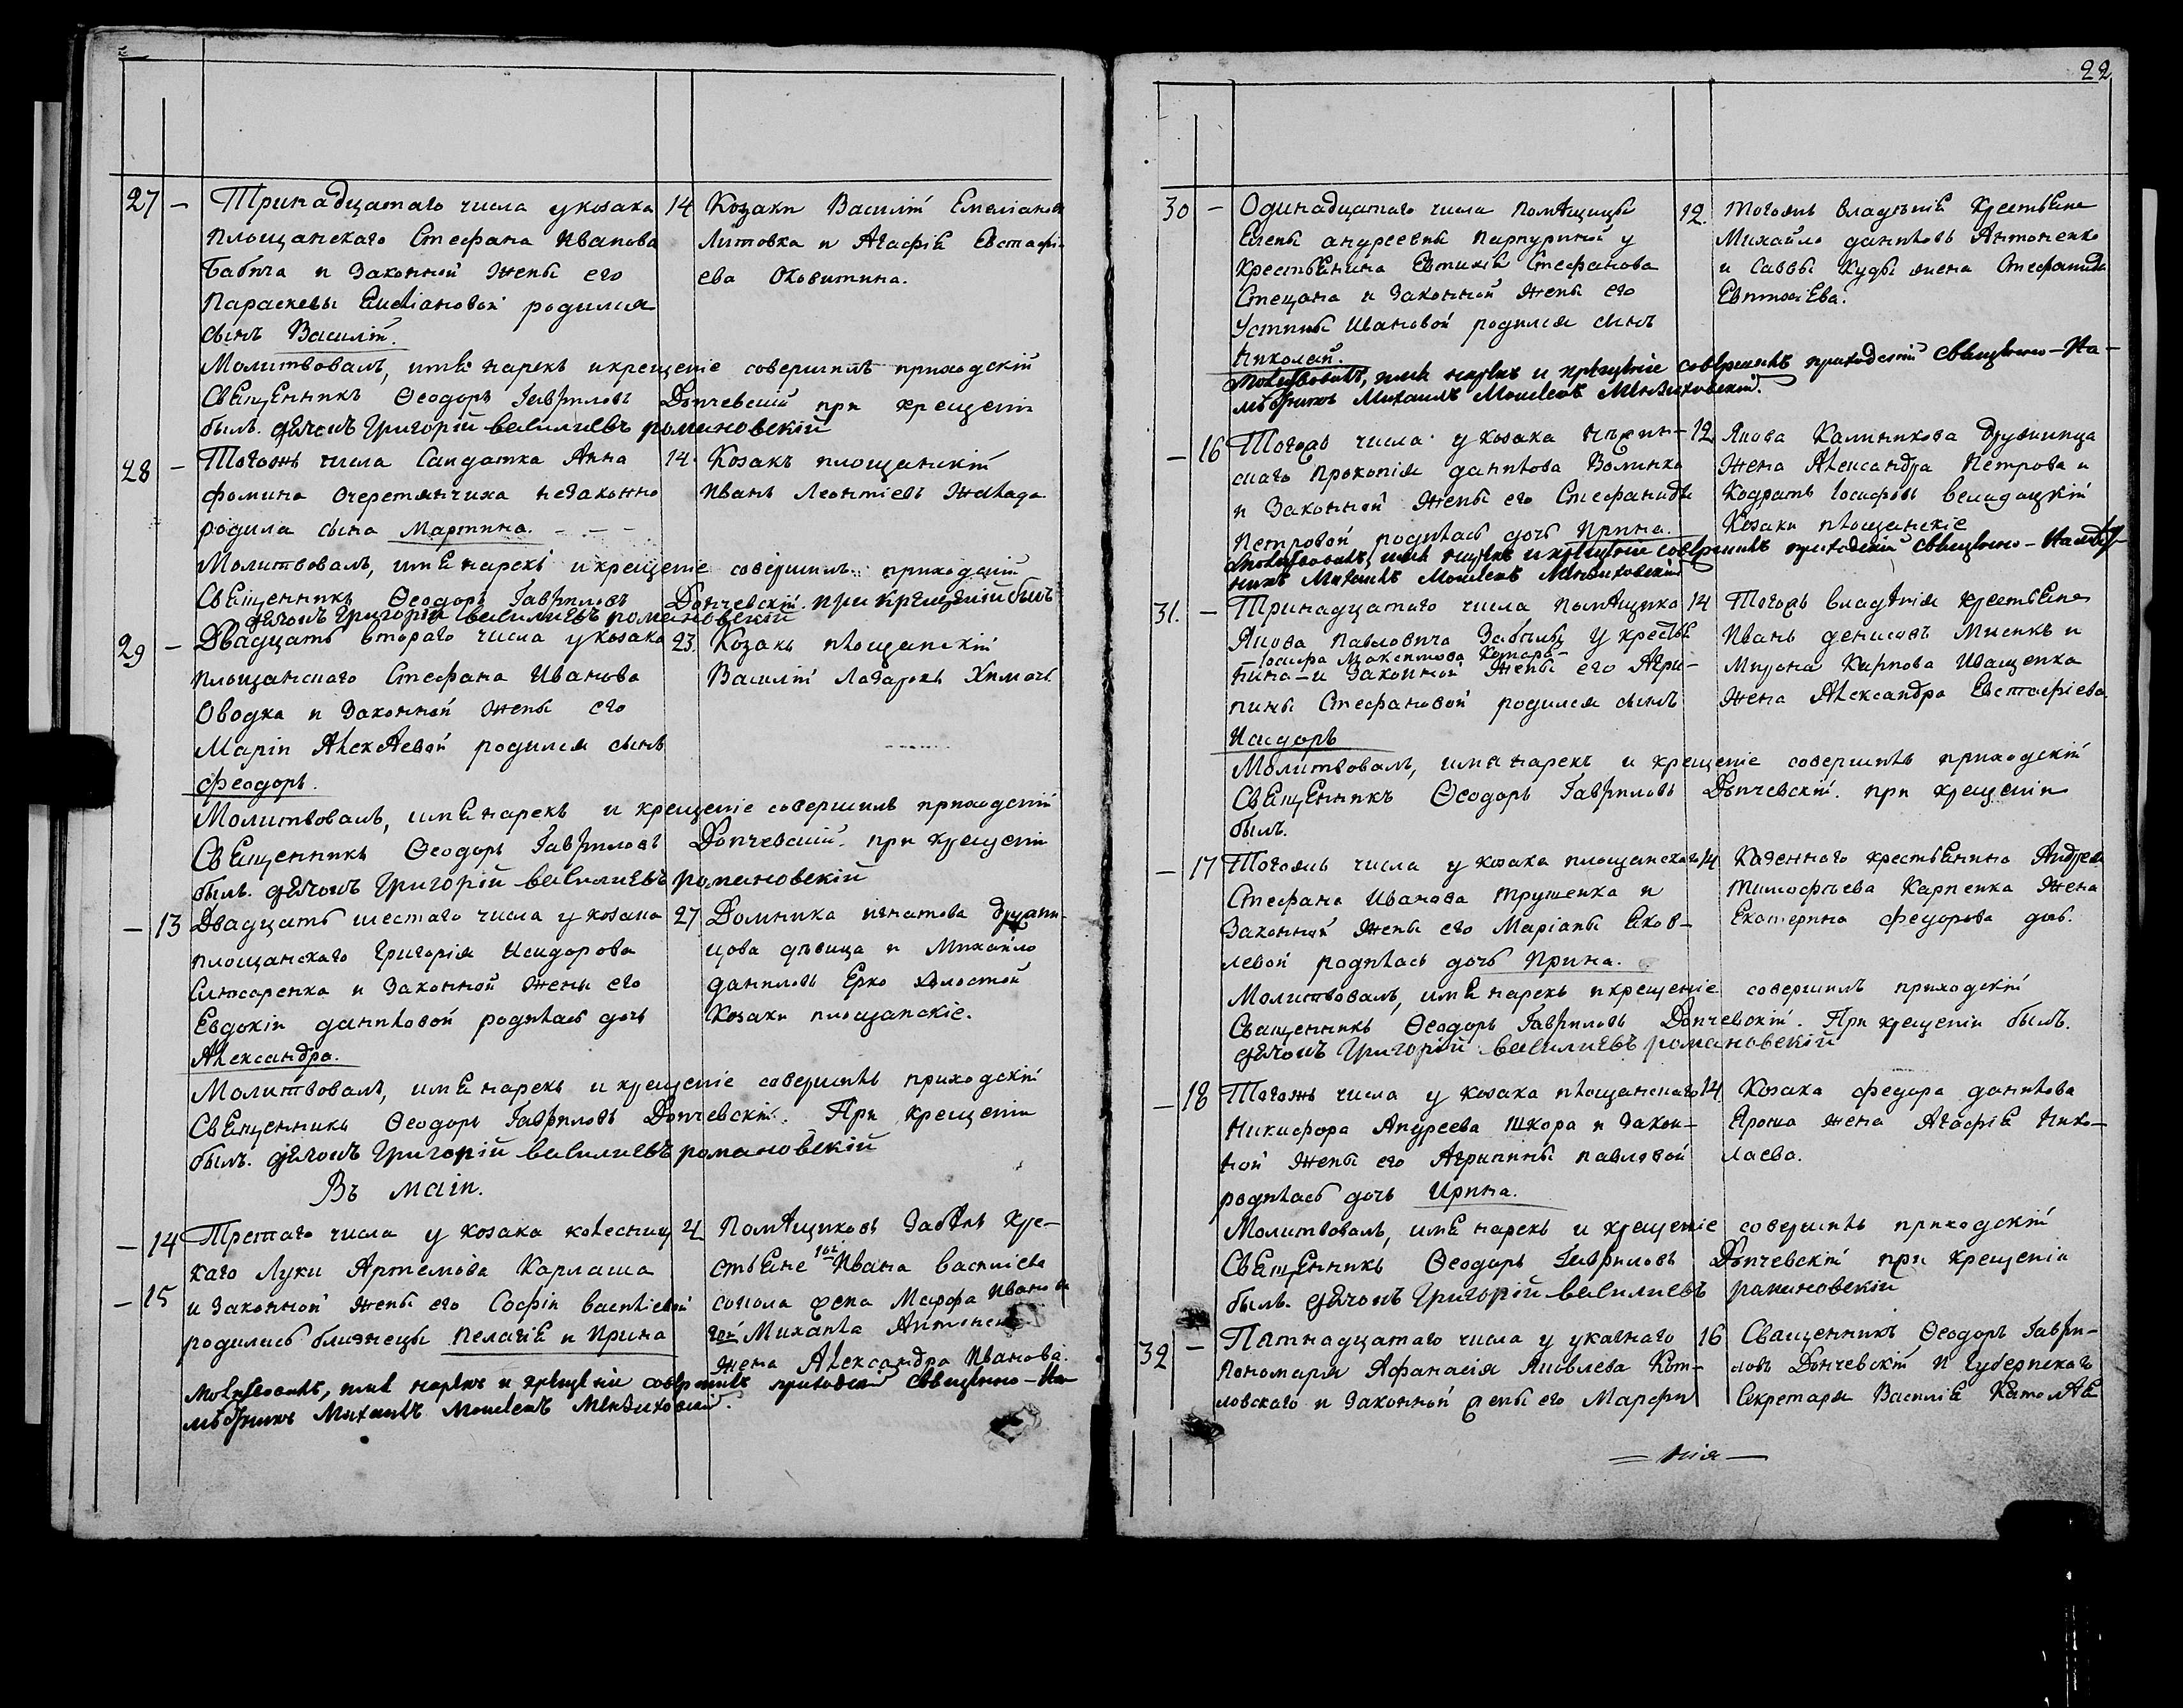 27 — Тринадцатаго числа у козака 14 Козаки Василій Емеліановъ
площанскаго Стефана Иванова Литовка и Агафія Евстафі-
Бабича и законной жены его ева Оковитина.
Параскевы Емеліановой родился
сынъ Василій.
Молитвовалъ, имя нарекъ и крещеніе совершилъ приходскій
Священникъ Ѳеодоръ Гавриловъ Дончевскій при крещеніи
былъ. дячокъ Григорій василиевъ романовскій
28 — Тогожъ числа Салдатка Анна 14. Козакъ площанскій
фомина Очеретянчиха незаконно Иванъ Леонтіевъ
родила сына Мартина.
Молитвовалъ, имя нарекъ и крещеніе совершилъ приходскій
Священникъ Ѳеодоръ Гавриловъ Дончевскій. при крещеніи былъ
дячокъ Григорій василиевъ романовскій
29 — Двадцать втораго числа у козака 23. Козакъ площанскій
площанскаго Стефана Иванова Василій Лазаревъ Химочь
Оводка и законной жены его
Маріи Алексѣевой родился сынъ
феодоръ.
Молитвовалъ, имя нарекъ и крещеніе совершилъ приходскій
Священникъ Ѳеодоръ Гавриловъ Дончевскій. при крещеніи
былъ. дячокъ Григорій василиевъ романовскій
— 13 Двадцать шестаго числа у козака 27 Домника игнатова
площанскаго Григорія Исидорова цова дѣвица и Михайло
Слюсаренка и законной жены его даниловъ Ерко холостой
Евдокіи даниловой родилась дочь Козаки площанскіе.
Александра.
Молитвовалъ, имя нарекъ и крещеніе совершилъ приходскій
Священникъ Ѳеодоръ Гавриловъ Дончевскій. При крещеніи
былъ. дячокъ Григорій василиевъ романовскій
Въ маіи.
— 14 Третаго числа у козака колесниц 4 Помѣщиковъ Забѣлъ кре-
каго Луки Артемова Карлаша стьяне 1ой Ивана василіева
— 15 и законной жены его Софіи василіевой сокола жена Марфа Иванова
родились близнецы Пелагія и Ирина Михаила
жена Александра Иванова.
Молитвовалъ, имя нарекъ и крещеніе совершилъ приходскій священно-На-
мѣстникъ Михаилъ Моисеевъ
22
30 — Одинадцатаго числа помѣщицы 12. тогожъ владѣнія крестьяне
Елены андреевны Парпуриной у Михайло даниловъ Антоненко
крестьянина Евтихія Стефанова и Саввы Куды жена Стефанида
Стецана и законной жены его Евтихіева.
Устины Ивановой родился сынъ
Николай.
Молитвовалъ, имя нарекъ и крещеніе совершилъ приходскій священно-На-
мѣстникъ Михаилъ Моисеевъ
— 16 Тогожъ числа у козака 12. Якова Калиникова
скаго Прокопія данилова Волинка жена Александра Петрова и
и законной жены его Стефаниды Кодратъ Іосифовъ
Петровой родилась дочь Ирина. Козаки площанскіе
Молитвовалъ, имя нарекъ и крещеніе совершилъ приходскій священно-Намѣст-
никъ Михаилъ Моисеевъ
31. — Тринадцатаго числа помѣщика 14 Тогожъ владѣнія крестьяне
Якова Павловича Забѣлы у крестья Иванъ денисовъ Мисикъ и
Іосифа Максимова
нина — и законной жены его Агри- Мирона Карпова Иващенка
пины Стефановой родился сынъ жена Александра Евстафіева
Исидоръ
Молитвовалъ, имя нарекъ и крещеніе совершилъ приходскій
Священникъ Ѳеодоръ Гавриловъ Дончевскій. при крещеніи
былъ.
— 17 Тогожъ числа у козака площанскаго 14 Казеннаго крестьянина Андрея
Стефана Иванова Трушенка и Тимофѣева Карпенка жена
законной жены его Маріаны Яков- Екатерина федорова дочь.
левой родилась дочь Ирина.
Молитвовалъ, имя нарекъ и крещеніе совершилъ приходскій
Священникъ Ѳеодоръ Гавриловъ Дончевскій. При крещеніи былъ.
дячокъ Григорій василиевъ романовскій
— 18 Тогожъ числа у козака площанскаго 14. Козака федора данилова
Никифора Андреева Шкора и закон- Яроша жена Агафія Нико-
ной жены его Агрипины павловой лаева.
родилась дочь Ирина.
Молитвовалъ, имя нарекъ и крещеніе совершилъ приходскій
Священникъ Ѳеодоръ Гавриловъ Дончевскій при крещеніи
былъ. дячокъ Григорій василиевъ романовскій
32 — Пятнадцатаго числа у указнаго 16 Священникъ Ѳеодоръ Гаври-
пономаря Афанасія Яковлева ловъ Дончевскій и Губернскаго
ловскаго и законной жены его Марфы Секретаря Василія